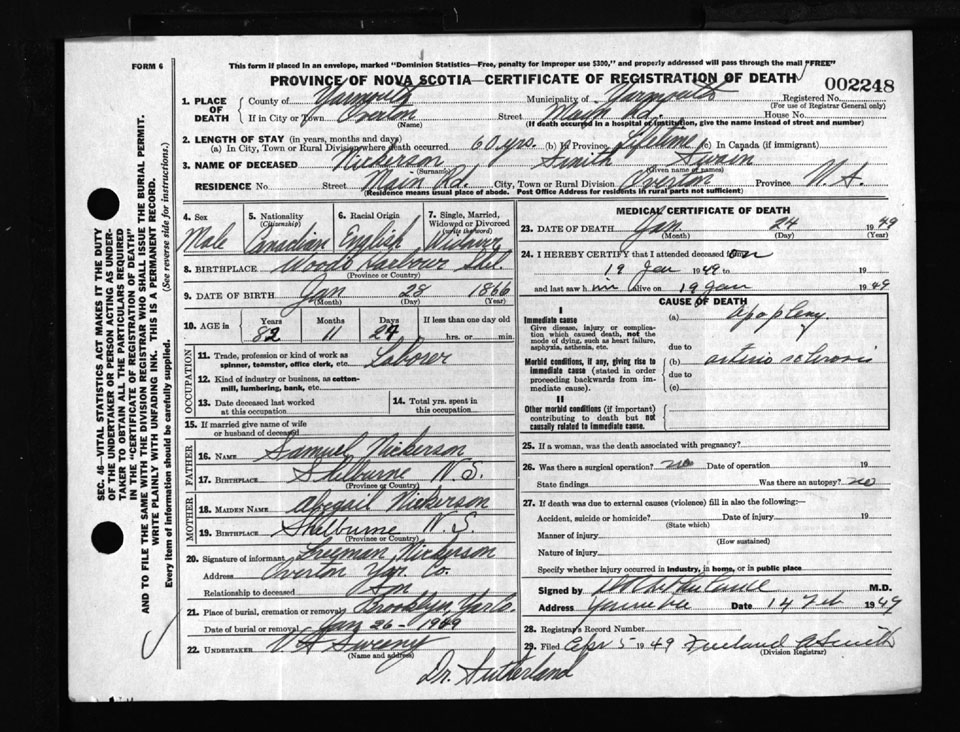 FORM 6
This form if placed in an envelope, marked "Dominion Statistics—Free, penalty for improper use $300," and properly addressed will pass through the mail "FREE"
PROVINCE OF NOVA SCOTIA—CERTIFICATE OF REGISTRATION OF DEATH
002248
1. PLACE OF DEATH
County of Yarmouth Municipality of Yarmouth Registered No.
(For use of Registrar General only)
If in City or Town Overton Street Main Rd. House No.
(Name) (If death occurred in a hospital or institution, give the name instead of street and number)
2. LENGTH OF STAY (in years, months and days)
(a) In City, Town or Rural Division where death occurred 60 yrs. (b) In Province Lifetime (c) In Canada (if immigrant)
3. NAME OF DECEASED Nickerson Smith Swain
(Surname) (Given name or names)
RESIDENCE No. Street Main Rd. City, Town or Rural Division Overton Province N.S.
(Residence means usual place of abode. Post Office Address for residents in rural parts not sufficient)
4. Sex Male
5. Nationality (Citizenship) Canadian
6. Racial Origin English
7. Single, Married, Widowed or Divorced (write the word) Widower
8. BIRTHPLACE Woods Harbour Shel.
(Province or Country)
9. DATE OF BIRTH Jan 28 1866
(Month) (Day) (Year)
10. AGE in Years 82 Months 11 Days 27 If less than one day old hrs. or min.
OCCUPATION
11. Trade, profession or kind of work as spinner, teamster, office clerk, etc. Laborer
12. Kind of industry or business, as cotton-mill, lumbering, bank, etc.
13. Date deceased last worked at this occupation
14. Total yrs. spent in this occupation
15. If married give name of wife or husband of deceased
FATHER
16. NAME Samuel Nickerson
17. BIRTHPLACE Shelburne N.S.
(Province or Country)
MOTHER
18. MAIDEN NAME Abigail Nickerson
19. BIRTHPLACE Shelburne N.S.
(Province or Country)
20. Signature of informant Freeman Nickerson
Address Overton Yar. Co.
Relationship to deceased Son
21. Place of burial, cremation or removal Brooklyn, Yar Co.
Date of burial or removal Jan 26 - 1949
22. UNDERTAKER V S Sweeny
(Name and address)
Dr. Sutherland
MEDICAL CERTIFICATE OF DEATH
23. DATE OF DEATH Jan. 24 1949
(Month) (Day) (Year)
24. I HEREBY CERTIFY that I attended deceased on
19 Jan 1949 to 19
and last saw him alive on 19 Jan 1949
CAUSE OF DEATH
I
Immediate cause (a) Apoplexy.
Give disease, injury or complication which caused death, not the mode of dying, such as heart failure, asphyxia, asthenia, etc.
due to
Morbid conditions, if any, giving rise to immediate cause (stated in order proceeding backwards from immediate cause).
(b) arterio sclerosis
due to
(c)
II
Other morbid conditions (if important) contributing to death but not causally related to immediate cause.
25. If a woman, was the death associated with pregnancy?
26. Was there a surgical operation? no Date of operation 19
State findings Was there an autopsy? no
27. If death was due to external causes (violence) fill in also the following:—
Accident, suicide or homicide? Date of injury 19
(State which)
Manner of injury
(How sustained)
Nature of injury
Specify whether injury occurred in industry, in home, or in public place
Signed by M.D.
Address Date 14 Feb 1949
28. Registrar's Record Number
29. Filed Apr 5 1949 Smith
(Division Registrar)
SEC. 46—VITAL STATISTICS ACT MAKES IT THE DUTY
OF THE UNDERTAKER OR PERSON ACTING AS UNDER-
TAKER TO OBTAIN ALL THE PARTICULARS REQUIRED
IN THE "CERTIFICATE OF REGISTRATION OF DEATH"
AND TO FILE THE SAME WITH THE DIVISION REGISTRAR WHO SHALL ISSUE THE BURIAL PERMIT.
WRITE PLAINLY WITH UNFADING INK. THIS IS A PERMANENT RECORD.
Every item of information should be carefully supplied. (See reverse side for instructions.)